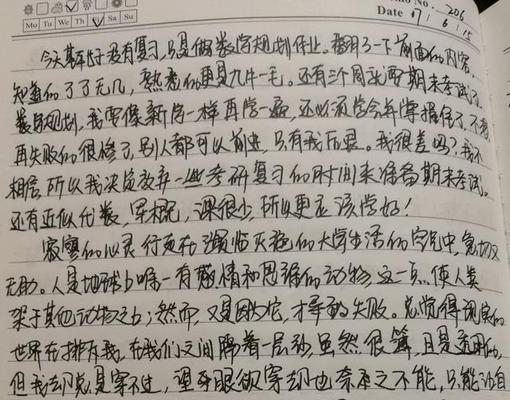 Mo Tu We Th Fr Sa Su
Date 6 / 15
今天基本没有复习,只是做数学规划作业。翻了一下前面的内容,
知道的了了无几,熟悉的更是九牛一毛。还有三个周就要期末考试了,
数学规划,我要像新学一样再学一遍,还必须学会弄懂
再失败的很惨了,别人都可以前进,只有我后退。我很差吗?我不
相信,所以我决定放弃一些考研复习的时间来准备期末考试。
还有近似代数,军概,课很少,所以更应该学好!
寂寞的心灵行走在濒临灭绝的大学生活的中,急切又
无助。人是地球上唯一有感情和思维的动物,这一点使人类
架于其他动物之上;然而,又是因为它,才屡屡失败。总觉得现实的
世界在排斥我,在我们之间隔着一层纱,虽然很薄,且是透明的,
但我却总是穿不过,望眼欲穿却也奈之不能,只能